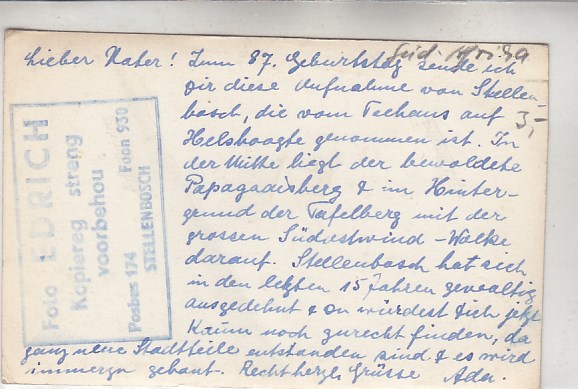 Süd-Afrika
3,-
Lieber Vater! Zum 87. Geburtstag sende ich
Dir diese Aufnahme von Stellen-
bosch, die vom Teehaus auf
Helshoogte genommen ist. In
der Mitte liegt der bewaldete
Papagaaisberg & im Hinter-
grund der Tafelberg mit der
grossen Südostwind-Wolke
darauf. Stellenbosch hat sich
in den letzten 15 Jahren gewaltig
ausgedehnt & Du würdest Dich jetzt
kaum noch zurecht finden, da
ganz neue Stadtteile entstanden sind & es wird
immerzu gebaut. Recht herzl. Grüsse
Foto EDRICH
Kopiereg streng
voorbehou
Posbus 174 Foon 930
STELLENBOSCH